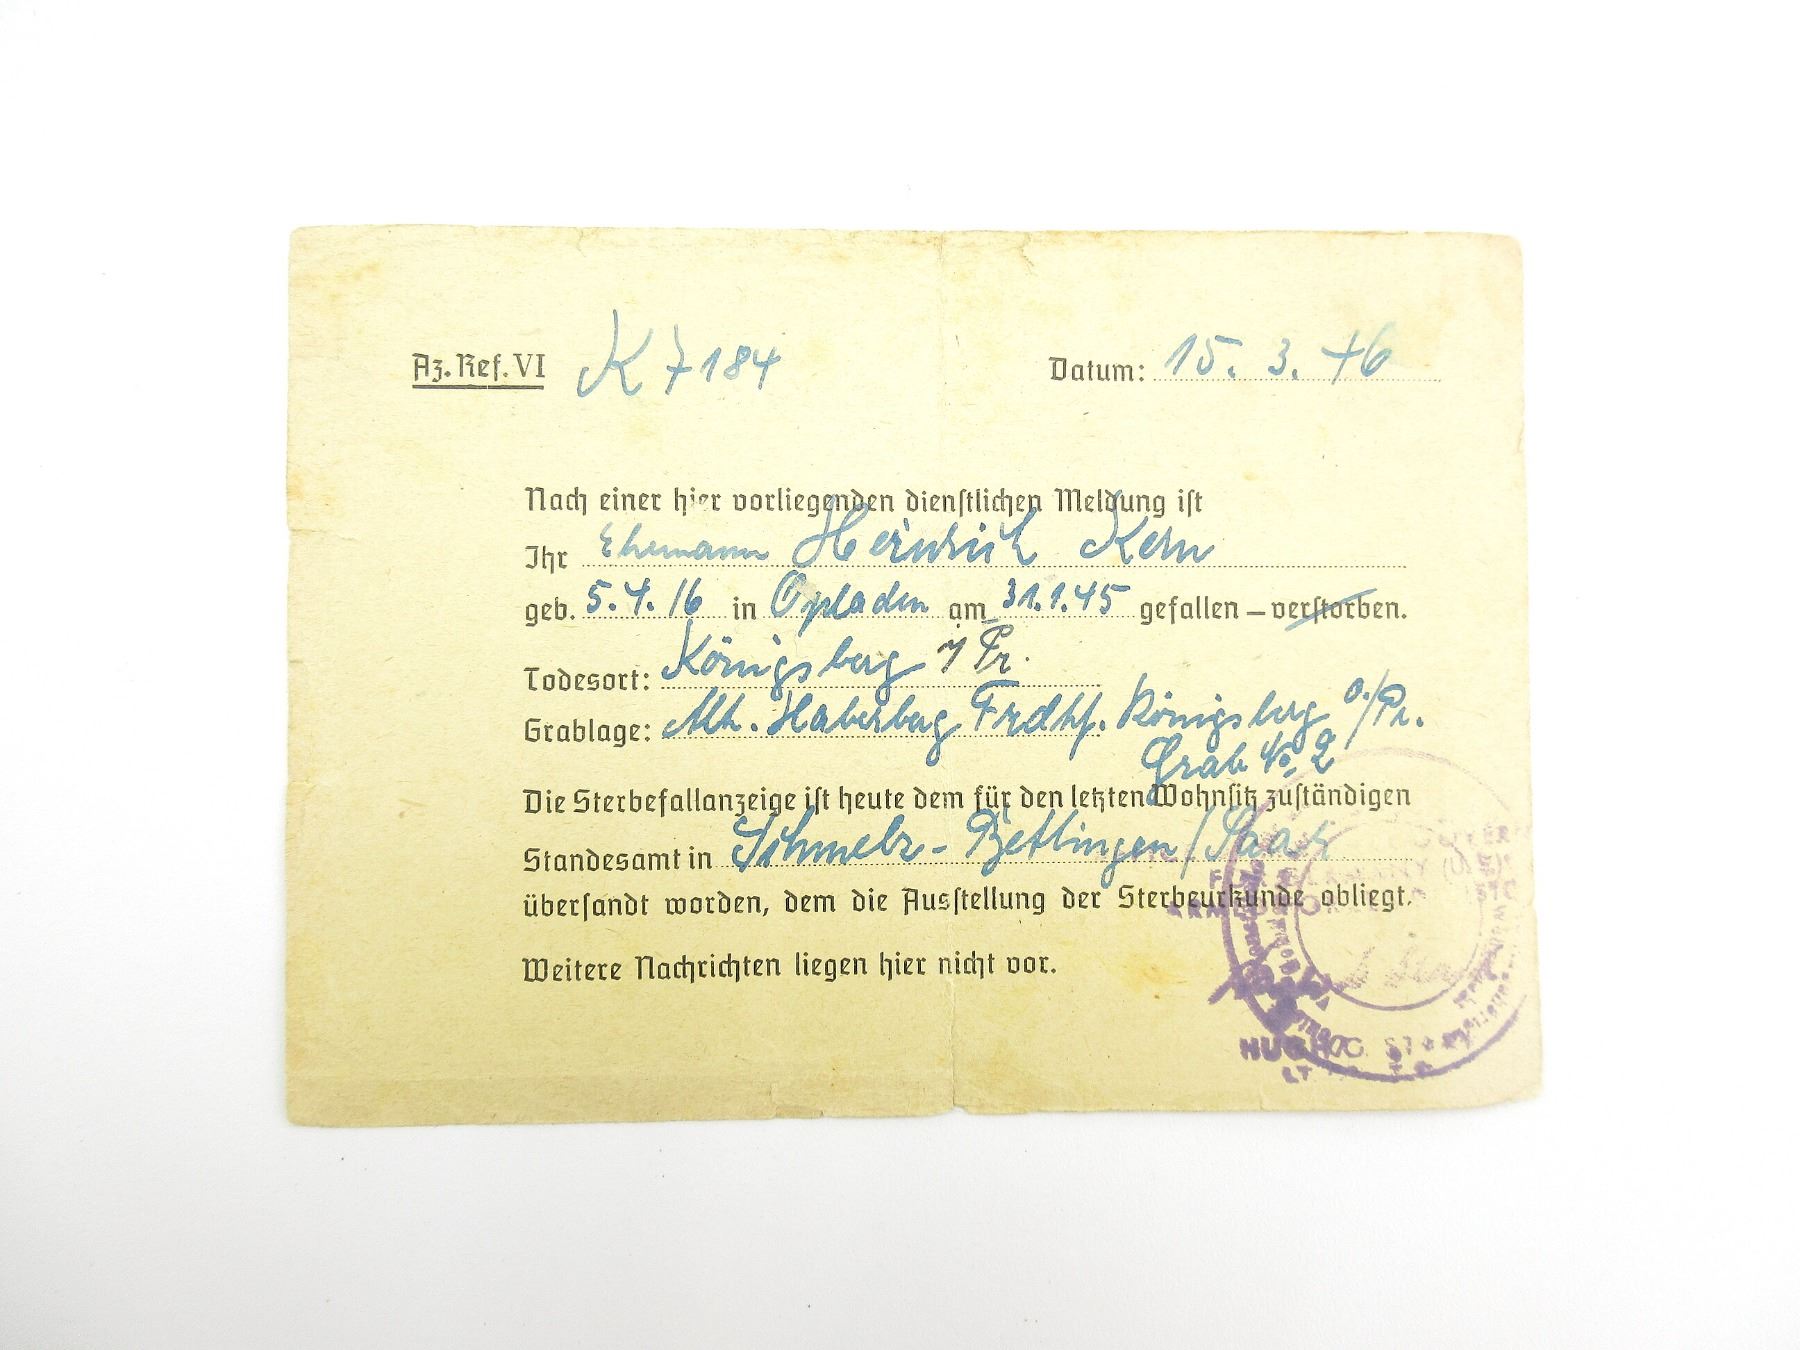 Az. Ref. VI K 7184 Datum: 15. 3. 46
Nach einer hier vorliegenden dienstlichen Meldung ist
Ihr Ehemann Heinrich Kern
geb. 5.4.16 in Opladen am 31.1.45 gefallen – verstorben.
Todesort: Königsberg /Pr.
Grablage: Alt. Haberberg Frdhf. Königsberg O./Pr.
Grab No. 2
Die Sterbefallanzeige ist heute dem für den letzten Wohnsitz zuständigen
Standesamt in Schmelz-Bettingen/Saar
übersandt worden, dem die Ausstellung der Sterbeurkunde obliegt.
Weitere Nachrichten liegen hier nicht vor.